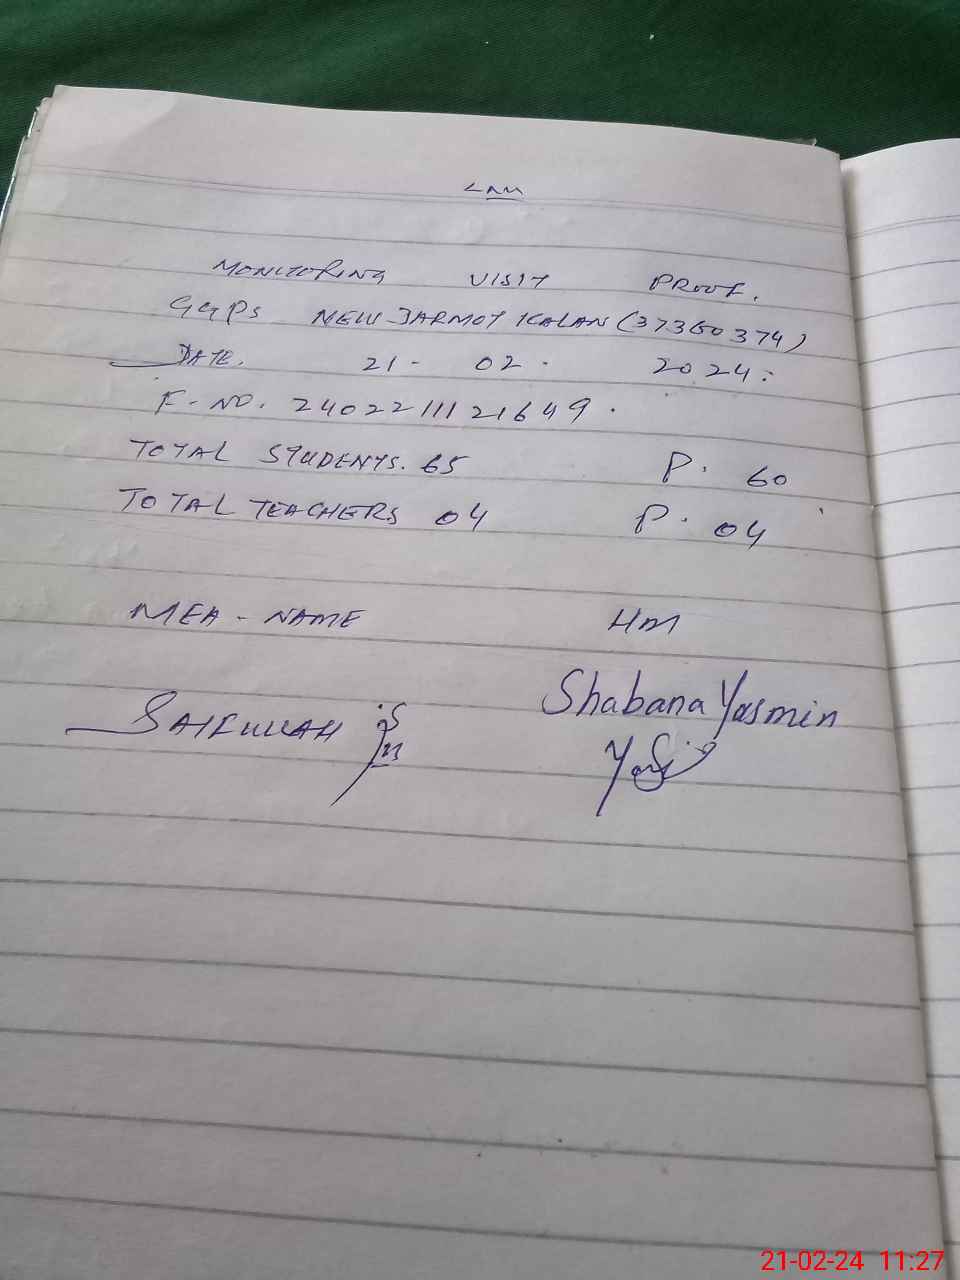 LAM
MONITORING VISIT PROOF.
GGPS NEW JARMOT KALAN (37360374)
DATE. 21- 02. 2024:
F-NO. 240221112 1649.
TOTAL STUDENTS. 65 P. 60
TOTAL TEACHERS 04 P. 04
MEA - NAME HM
SAIFULLAH Shabana Yasmin
21-02-24 11:27